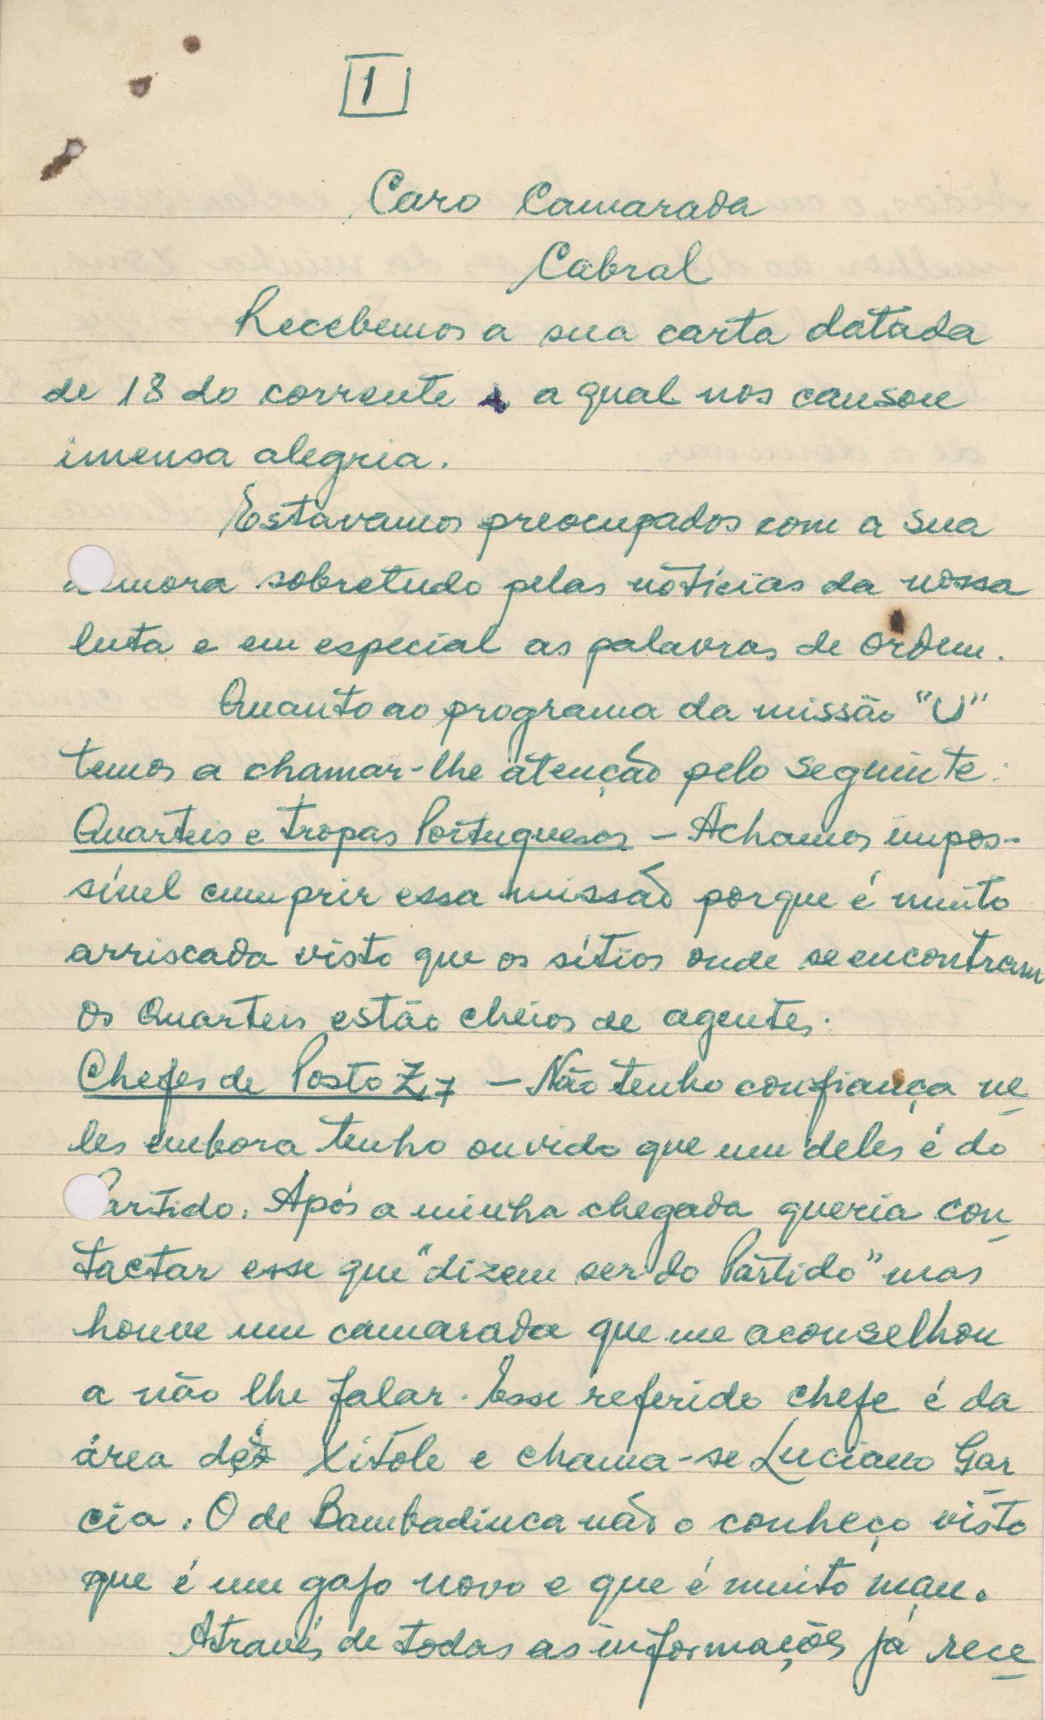 1
Caro Camarada
Cabral
Recebemos a sua carta datada
de 18 do corrente a qual nos causou
imensa alegria.
Estavamos preocupados com a sua
demora sobretudo pelas notícias da nossa
luta e em especial as palavras de ordem.
Quanto ao programa da missão "U"
temos a chamar-lhe atenção pelo seguinte:
Quarteis e tropas Portuguesas - Achamos impos-
sível cumprir essa missão porque é muito
arriscada visto que os sítios onde se encontram
os Quarteis estão cheios de agentes.
Chefes de Posto Z,7 - Não tenho confiança ne
les embora tenho ouvido que um deles é do
Partido. Após a minha chegada queria con
tactar esse que "dizem ser do Partido" mas
houve um camarada que me aconselhou
a não lhe falar. Esse referido chefe é da
área de Xitole e chama-se Luciano Gar
cia. O de Bambadinca não o conheço visto
que é um gajo novo e que é muito mau.
Através de todas as informações já rece